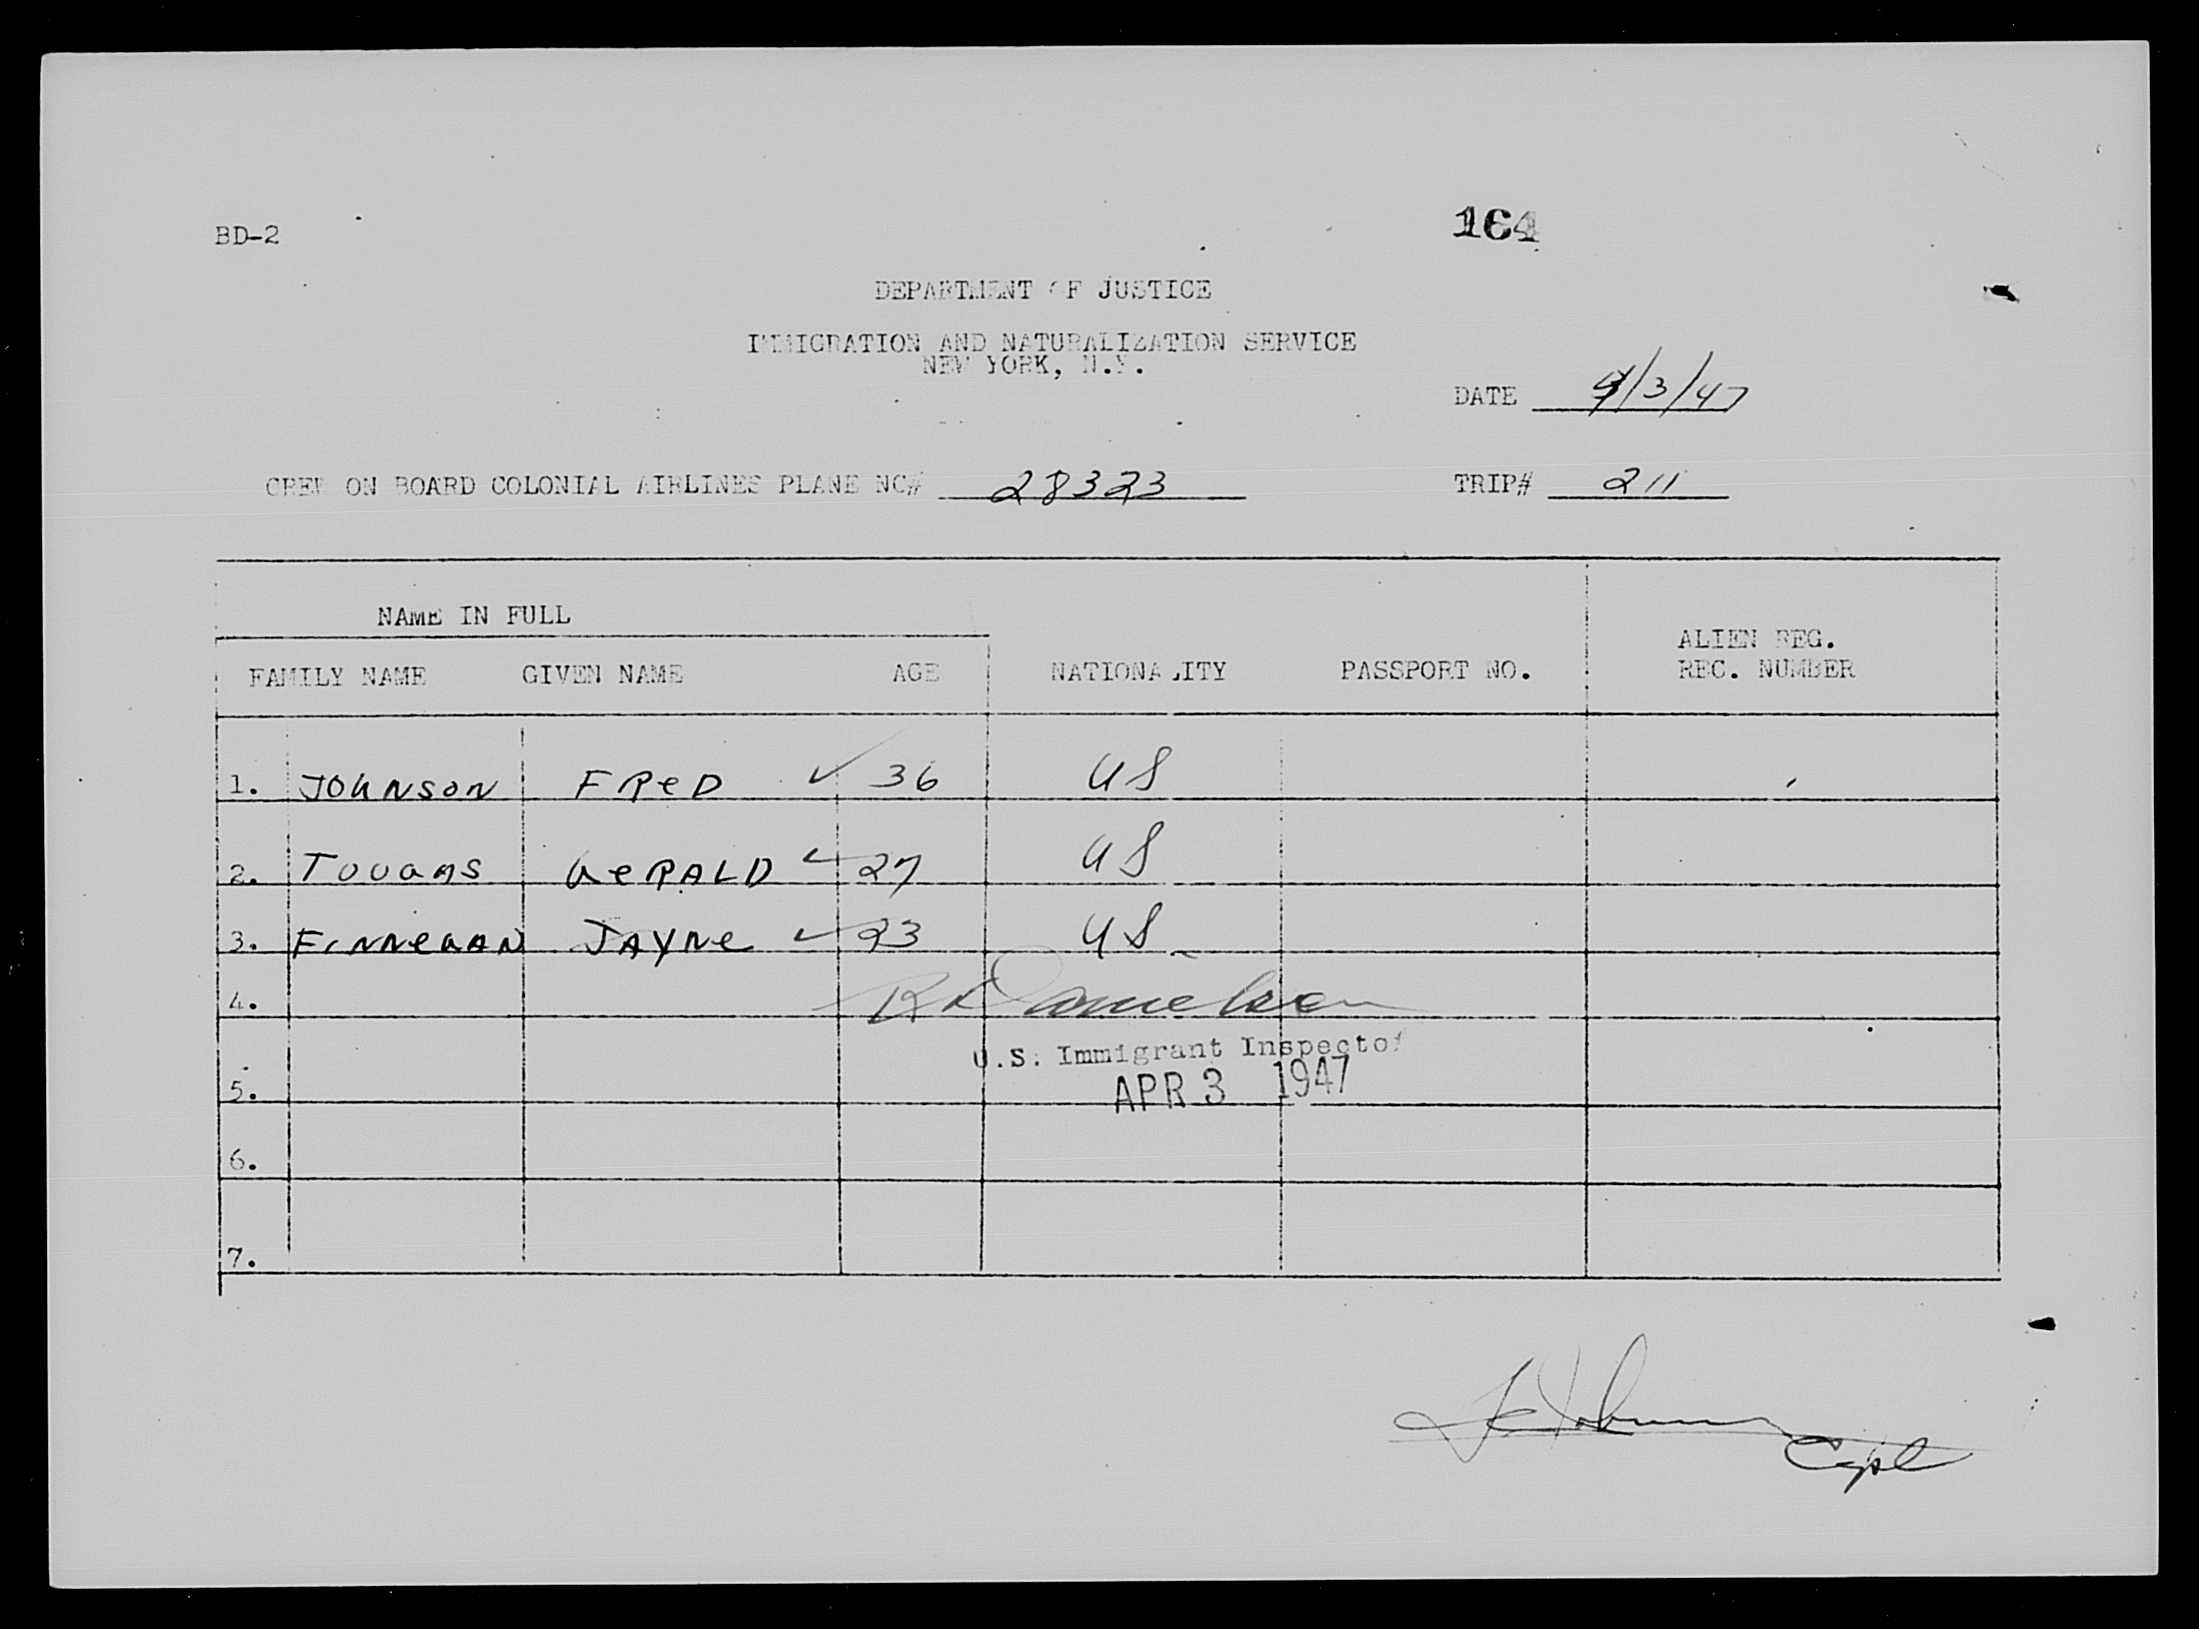 BD-2
164
DEPARTMENT OF JUSTICE
IMMIGRATION AND NATURALIZATION SERVICE
NEW YORK, N.Y.
DATE 4/3/47
CREW ON BOARD COLONIAL AIRLINES PLANE NC# 28323 TRIP# 211
NAME IN FULL
FAMILY NAME GIVEN NAME AGE NATIONALITY PASSPORT NO. ALIEN REG. REC. NUMBER
1. JOHNSON FRED ✓ 36 US
2. TOUGAS GERALD ✓ 27 US
3. FINNEGAN JAYNE ✓ 23 US
4. R Danielsen
U.S. Immigrant Inspector
5. APR 3 1947
6.
7.
F Johnson
Capt